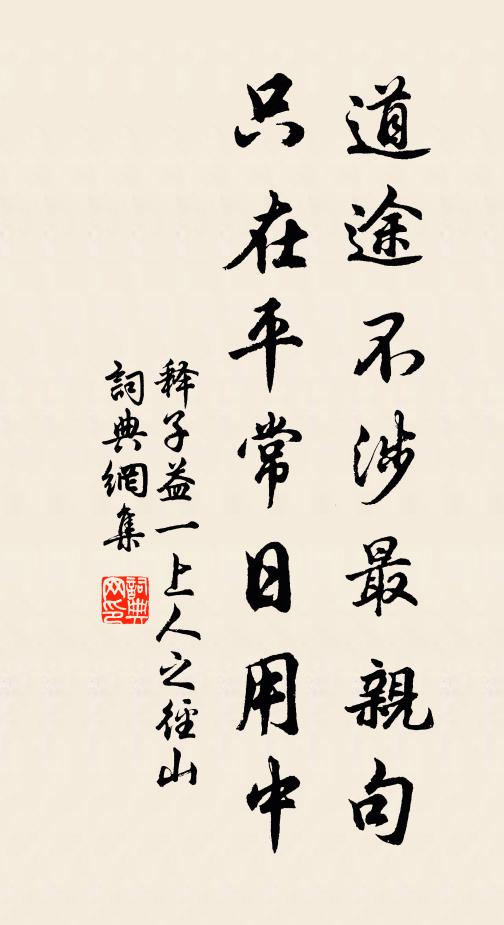 道途不涉最親句
只在平常日用中
释子益一上人之徑山
詞典網集
詞典网印